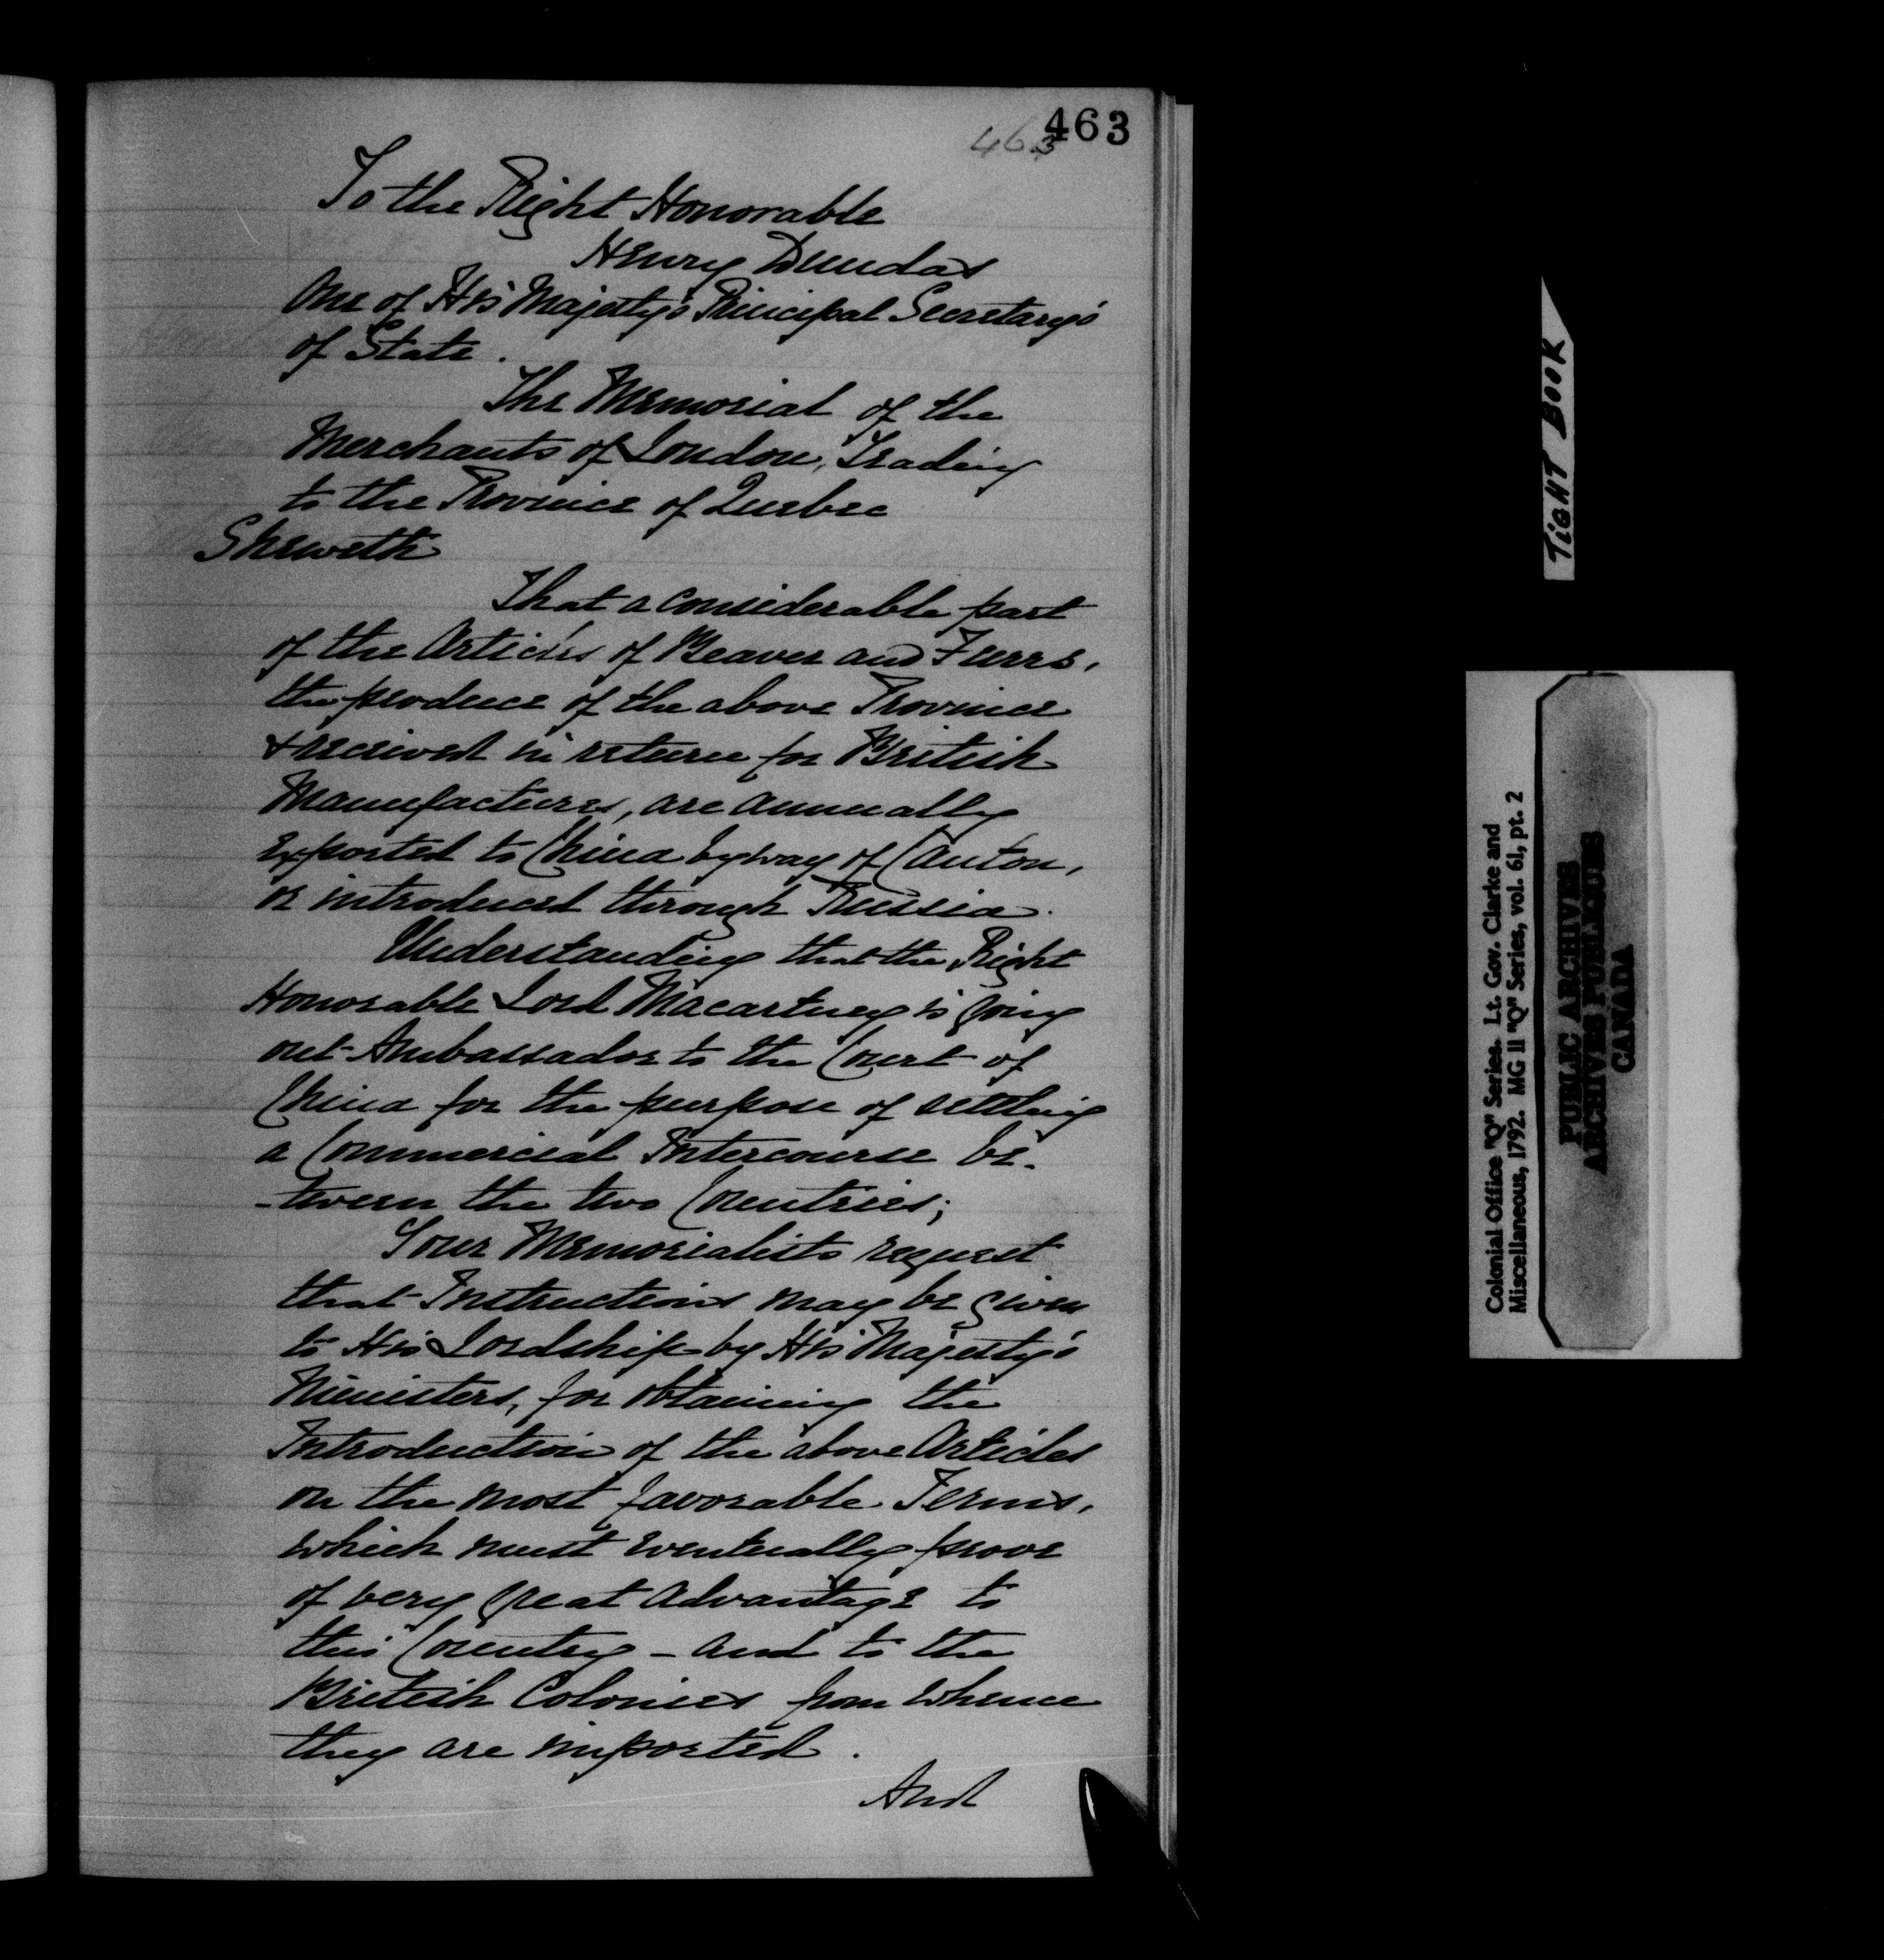 463
463
To the Right Honorable
Henry Dundas
One of His Majesty's Principal Secretary's
of State.
The Memorial of the
Merchants of London, Trading
to the Province of Quebec
Sheweth
That a considerable part
of the Articles of Beaver and Furrs,
the produce of the above Province
& received in return for British
Manufactures, are annually
Exported to China by way of Canton,
or introduced through Russia.
Understanding that the Right
Honorable Lord Macartney is going
out Ambassador to the Court of
China for the purpose of settling
a Commercial Intercourse be-
-tween the two Countries;
Your Memorialists request
that Instructions may be given
to His Lordship by His Majesty's
Ministers, for obtaining the
Introduction of the above Articles
on the most favorable Terms,
which must eventually prove
of very great Advantage to
this Country - and to the
British Colonies from whence
they are imported.
And
TIGHT BOOK
Colonial Office "Q" Series. Lt. Gov. Clarke and
Miscellaneous, 1792. MG 11 "Q" Series, vol. 61, pt. 2
PUBLIC ARCHIVES
ARCHIVES PUBLIQUES
CANADA